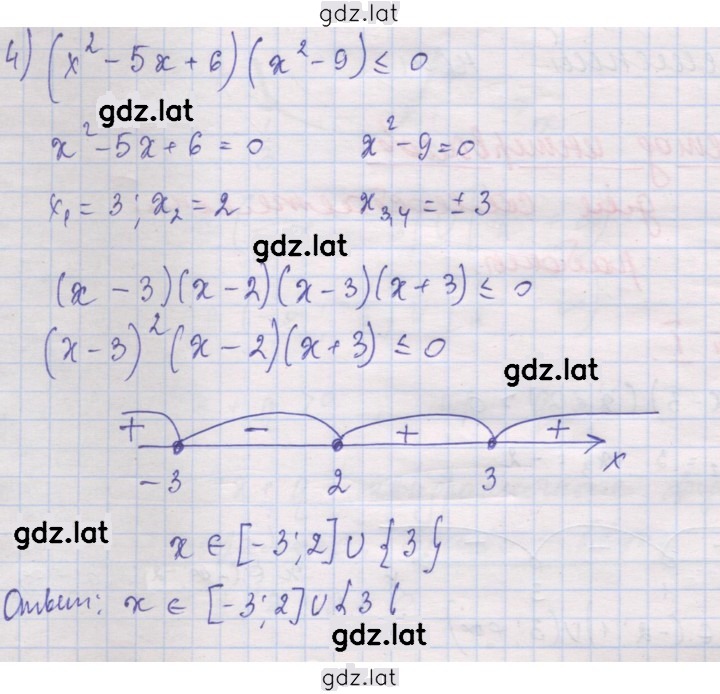 gdz.lat
4) (x² - 5x + 6)(x² - 9) ≤ 0
gdz.lat
x² - 5x + 6 = 0 x² - 9 = 0
x₁ = 3; x₂ = 2 x₃,₄ = ± 3
gdz.lat
(x - 3)(x - 2)(x - 3)(x + 3) ≤ 0
(x - 3)² (x - 2)(x + 3) ≤ 0
gdz.lat
+ - + +
x
-3 2 3
gdz.lat
x ∈ [-3; 2] ∪ {3}
Ответ: x ∈ [-3; 2] ∪ {3}
gdz.lat
gdz.lat